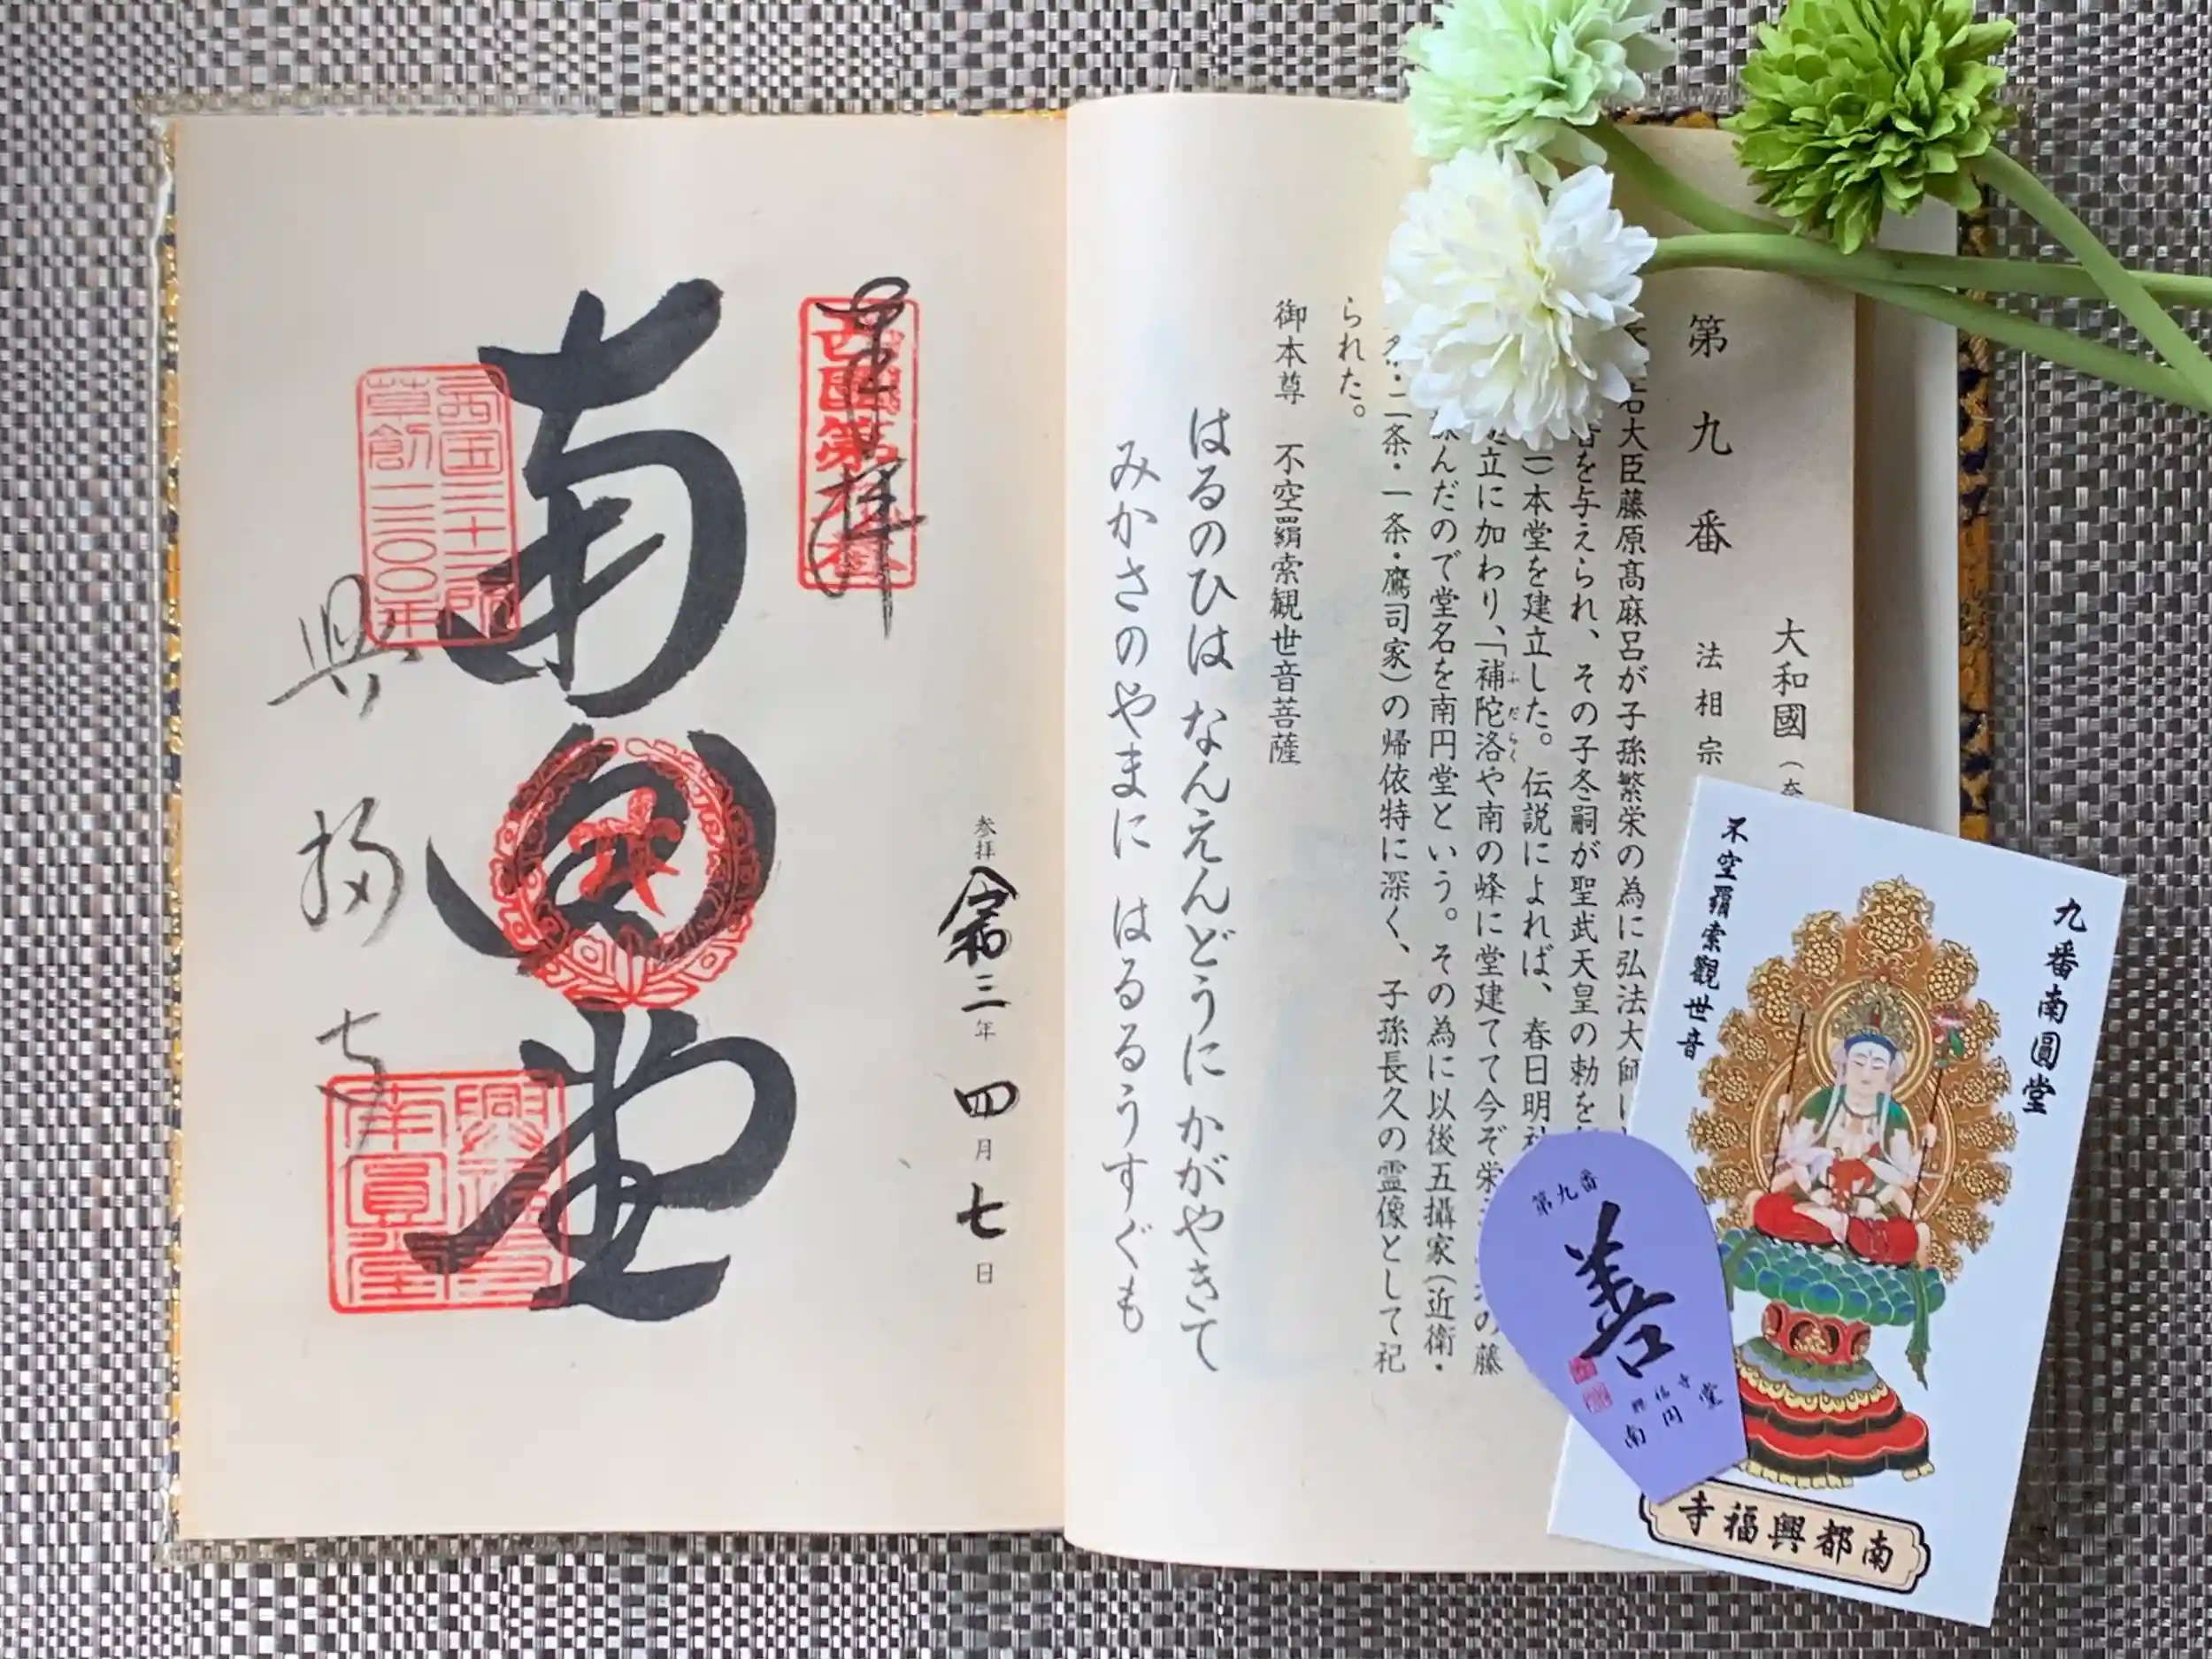 大和國
第九番 法相宗
右大臣藤原髙麻呂が子孫繁栄の為に弘法大師に
を与えられ、その子冬嗣が聖武天皇の勅を
本堂を建立した。伝説によれば、春日明
立に加わり、「補陀洛や南の峰に堂建てて今ぞ栄 の藤
んだので堂名を南円堂という。その為に以後五攝家(近衛・
二条・一条・鷹司家)の帰依特に深く、子孫長久の霊像として祀
られた。
ふだらく
御本尊 不空羂索観世音菩薩
はるのひは なんえんどうに かがやきて
みかさのやまに はるるうすぐも
奉拝
西國第九番
参拝 令和三年四月七日
南円堂
西国三十三所
草創一三〇〇年
興福寺
興福寺
南圓堂
九番南圓堂
不空羂索觀世音
南都興福寺
第九番
善
興福寺
南円堂